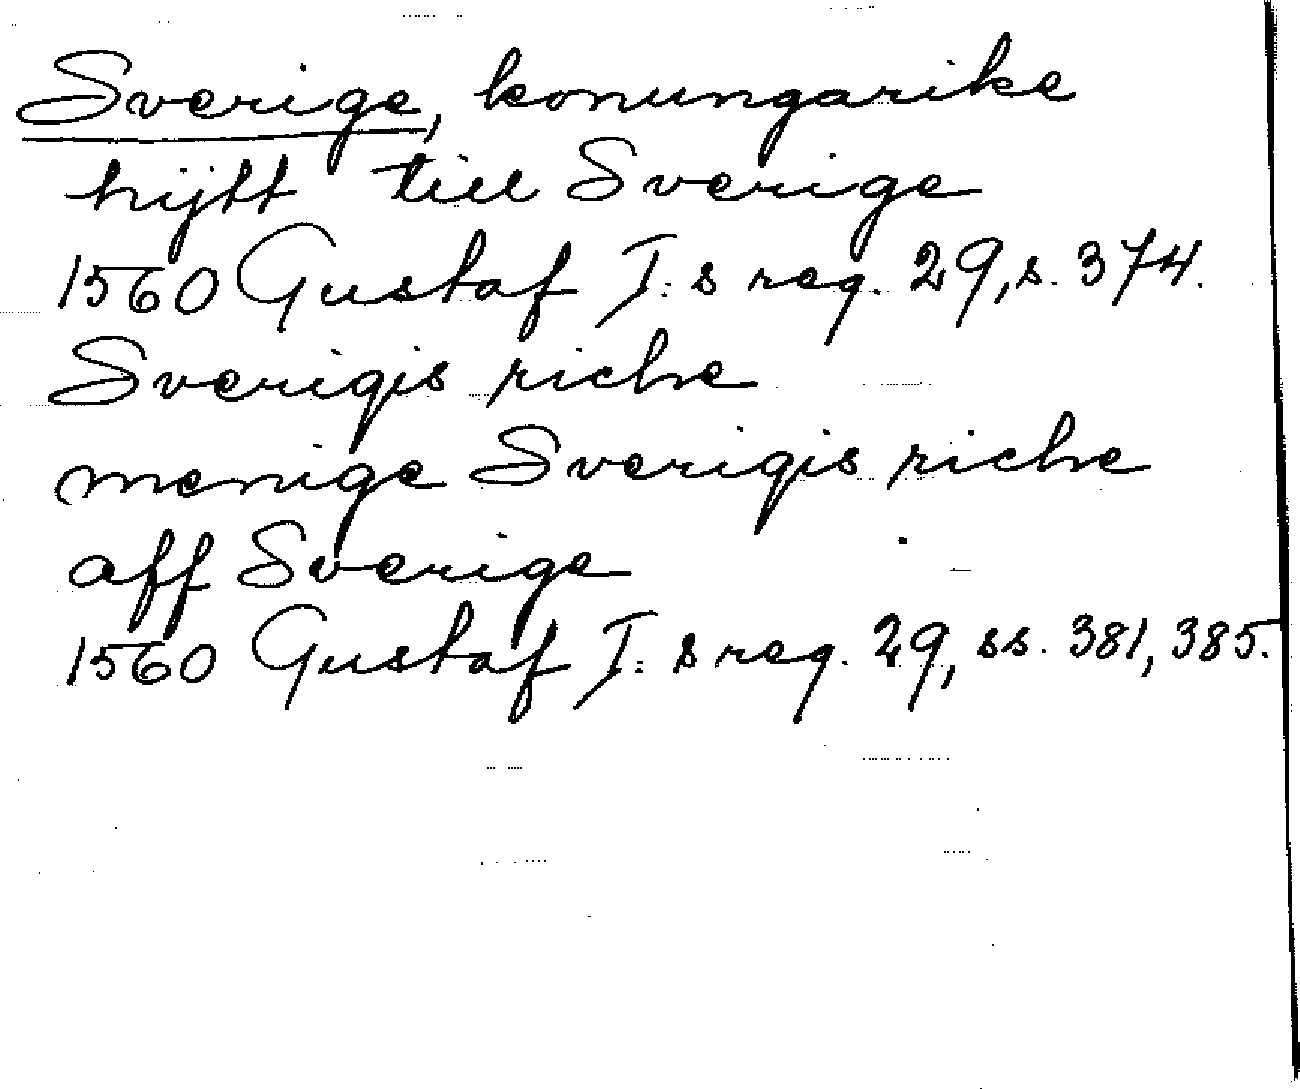 Sverige, konungarike
hijtt till Sverige
1560 Gustaf I:s reg. 29, s. 374.
Sverigis riche
menige Sverigis riche
aff Sverige
1560 Gustaf I:s reg. 29, ss. 381, 385.